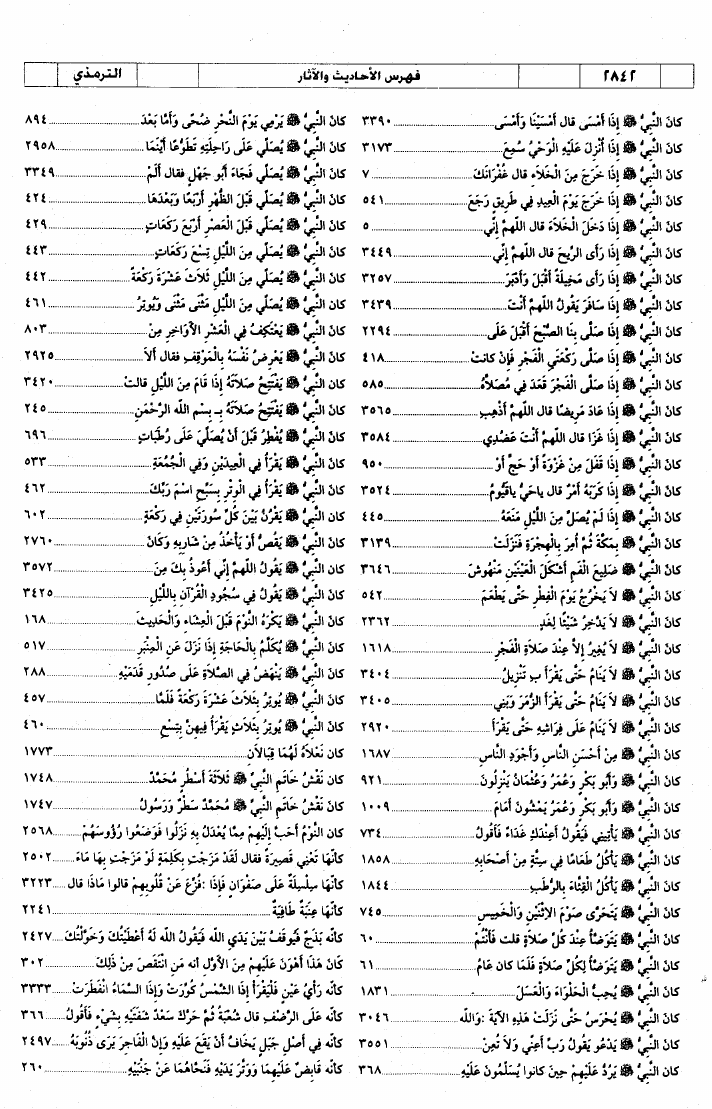 ٢٨٤٢ فهرس الأحاديث والآثار الترمذي
كانَ النَّبيُّ ﷺ إِذَا أَمْسَى قال أَمْسَيْنَا وَأَمْسَى ٣٣٩٠
كانَ النَّبيُّ ﷺ إِذَا أُنْزِلَ عَلَيْهِ الْوَحْيُ سُمِعَ ٣١٧٣
كانَ النَّبيُّ ﷺ إِذَا خَرَجَ مِنَ الْخَلَاءِ قال غُفْرَانَكَ ٧
كانَ النَّبيُّ ﷺ إِذَا خَرَجَ يَوْمَ الْعِيدِ فِي طَرِيقٍ رَجَعَ ٥٤١
كانَ النَّبيُّ ﷺ إِذَا دَخَلَ الْخَلَاءَ قال اللّهمَّ إنِّي ٥
كانَ النَّبيُّ ﷺ إِذَا رَأَى الرِّيحَ قال اللّهمَّ إنِّي ٣٤٤٩
كانَ النَّبيُّ ﷺ إِذَا رَأَى مَخِيلَةً أَقْبَلَ وَأَدْبَرَ ٣٢٥٧
كانَ النَّبيُّ ﷺ إِذَا سَافَرَ يَقُولُ اللّهمَّ أَنْتَ ٣٤٣٩
كانَ النَّبيُّ ﷺ إِذَا صَلَّى بِنَا الصُّبْحَ أَقْبَلَ عَلَى ٢٢٩٤
كانَ النَّبيُّ ﷺ إِذَا صَلَّى رَكْعَتَيِ الْفَجْرِ فَإِنْ كانتْ ٤١٨
كانَ النَّبيُّ ﷺ إِذَا صَلَّى الْفَجْرَ قَعَدَ فِي مُصَلاَّهُ ٥٨٥
كانَ النَّبيُّ ﷺ إِذَا عَادَ مَرِيضًا قال اللّهمَّ أَذْهِبِ ٣٥٦٥
كانَ النَّبيُّ ﷺ إِذَا غَزَا قال اللّهمَّ أَنْتَ عَضُدِي ٣٥٨٤
كانَ النَّبيُّ ﷺ إِذَا قَفَلَ مِنْ غَزْوَةٍ أَوْ حَجٍّ أَوْ ٩٥٠
كانَ النَّبيُّ ﷺ إِذَا كَرَبَهُ أَمْرٌ قال يَاحَيُّ يَاقَيُّومُ ٣٥٢٤
كانَ النَّبيُّ ﷺ إِذَا لَمْ يُصَلِّ مِنَ اللَّيْلِ مَنَعَهُ ٤٤٥
كانَ النَّبيُّ ﷺ بِمَكَّةَ ثُمَّ أُمِرَ بِالْهِجْرَةِ فَنَزَلَتْ ٣١٣٩
كانَ النَّبيُّ ﷺ ضَلِيعَ الْفَمِ أَشْكَلَ الْعَيْنَيْنِ مَنْهُوشَ ٣٦٤٦
كانَ النَّبيُّ ﷺ لاَ يَخْرُجُ يَوْمَ الْفِطْرِ حَتَّى يَطْعَمَ ٥٤٢
كانَ النَّبيُّ ﷺ لاَ يَدَّخِرُ شَيْئًا لِغَدٍ ٢٣٦٢
كانَ النَّبيُّ ﷺ لاَ يُغِيرُ إِلاَّ عِنْدَ صَلاَةِ الْفَجْرِ ١٦١٨
كانَ النَّبيُّ ﷺ لاَ يَنَامُ حَتَّى يَقْرَأَ بـ تَنْزِيلُ ٣٤٠٤
كانَ النَّبيُّ ﷺ لاَ يَنَامُ حَتَّى يَقْرَأَ الزُّمَرَ وَبَنِي ٣٤٠٥
كانَ النَّبيُّ ﷺ لاَ يَنَامُ عَلَى فِرَاشِهِ حَتَّى يَقْرَأَ ٢٩٢٠
كانَ النَّبيُّ ﷺ مِنْ أَحْسَنِ النَّاسِ وَأَجْوَدِ النَّاسِ ١٦٨٧
كانَ النَّبيُّ ﷺ وَأَبو بَكْرٍ وَعُمَرُ وَعُثْمَانُ يَنْزِلُونَ ٩٢١
كانَ النَّبيُّ ﷺ وَأَبو بَكْرٍ وَعُمَرُ يَمْشُونَ أَمَامَ ١٠٠٩
كانَ النَّبيُّ ﷺ يَأْتِينِي فَيَقُولُ أَعِنْدَكِ غَدَاءٌ فَأَقُولُ ٧٣٤
كانَ النَّبيُّ ﷺ يَأْكُلُ طَعَامًا فِي سِتَّةٍ مِنْ أَصْحَابِهِ ١٨٥٨
كانَ النَّبيُّ ﷺ يَأْكُلُ الْقِثَّاءَ بِالرُّطَبِ ١٨٤٤
كانَ النَّبيُّ ﷺ يَتَحَرَّى صَوْمَ الاِثْنَيْنِ وَالْخَمِيسِ ٧٤٥
كانَ النَّبيُّ ﷺ يَتَوَضَّأُ عِنْدَ كُلِّ صَلاَةٍ قلت فَأَنْتُمْ ٦٠
كانَ النَّبيُّ ﷺ يَتَوَضَّأُ لِكُلِّ صَلاَةٍ فَلَمَّا كان عَامُ ٦١
كانَ النَّبيُّ ﷺ يُحِبُّ الْحَلْوَاءَ وَالْعَسَلَ ١٨٣١
كانَ النَّبيُّ ﷺ يُحْرَسُ حَتَّى نَزَلَتْ هَذِهِ الآيَةُ :وَاللَّه ٣٠٤٦
كانَ النَّبيُّ ﷺ يَدْعُو يَقُولُ رَبِّ أَعِنِّي وَلاَ تُعِنْ ٣٥٥١
كانَ النَّبيُّ ﷺ يَرُدُّ عَلَيْهِمْ حِينَ كانوا يُسَلِّمُونَ عَلَيْهِ ٣٦٨
كانَ النَّبيُّ ﷺ يَرْمِي يَوْمَ النَّحْرِ ضُحًى وَأَمَّا بَعْدَ ٨٩٤
كانَ النَّبيُّ ﷺ يُصَلِّي عَلَى رَاحِلَتِهِ تَطَوُّعًا أَيْنَمَا ٢٩٥٨
كانَ النَّبيُّ ﷺ يُصَلِّي فَجَاءَ أَبو جَهْلٍ فقال أَلَمْ ٣٣٤٩
كانَ النَّبيُّ ﷺ يُصَلِّي قَبْلَ الظُّهْرِ أَرْبَعًا وَبَعْدَهَا ٤٢٤
كانَ النَّبيُّ ﷺ يُصَلِّي قَبْلَ الْعَصْرِ أَرْبَعَ رَكَعَاتٍ ٤٢٩
كانَ النَّبيُّ ﷺ يُصَلِّي مِنَ اللَّيْلِ تِسْعَ رَكَعَاتٍ ٤٤٣
كانَ النَّبيُّ ﷺ يُصَلِّي مِنَ اللَّيْلِ ثَلاَثَ عَشْرَةَ رَكْعَةً ٤٤٢
كانَ النَّبيُّ ﷺ يُصَلِّي مِنَ اللَّيْلِ مَثْنَى مَثْنَى وَيُوتِرُ ٤٦١
كانَ النَّبيُّ ﷺ يَعْتَكِفُ فِي الْعَشْرِ الأَوَاخِرِ مِنْ ٨٠٣
كانَ النَّبيُّ ﷺ يَعْرِضُ نَفْسَهُ بِالْمَوْقِفِ فقال أَلاَ ٢٩٢٥
كان النَّبيُّ ﷺ يَفْتَتِحُ صَلاَتَهُ إِذَا قَامَ مِنَ اللَّيْلِ قالتْ ٣٤٢٠
كانَ النَّبيُّ ﷺ يَفْتَتِحُ صَلاَتَهُ بـ بِسْمِ اللَّه الرَّحْمَنِ ٢٤٥
كانَ النَّبيُّ ﷺ يُفْطِرُ قَبْلَ أَنْ يُصَلِّيَ عَلَى رُطَبَاتٍ ٦٩٦
كانَ النَّبيُّ ﷺ يَقْرَأُ فِي الْعِيدَيْنِ وَفِي الْجُمُعَةِ ٥٣٣
كانَ النَّبيُّ ﷺ يَقْرَأُ فِي الْوِتْرِ بِسَبِّحِ اسْمَ رَبِّكَ ٤٦٢
كانَ النَّبيُّ ﷺ يَقْرُنُ بَيْنَ كُلِّ سُورَتَيْنِ فِي رَكْعَةٍ ٦٠٢
كانَ النَّبيُّ ﷺ يَقُصُّ أَوْ يَأْخُذُ مِنْ شَارِبِهِ وَكَانَ ٢٧٦٠
كانَ النَّبيُّ ﷺ يَقُولُ اللّهمَّ إِنِّي أَعُوذُ بِكَ مِنَ ٣٥٧٢
كانَ النَّبيُّ ﷺ يَقُولُ فِي سُجُودِ الْقُرْآنِ بِاللَّيْلِ ٣٤٢٥
كانَ النَّبيُّ ﷺ يَكْرَهُ النَّوْمَ قَبْلَ الْعِشَاءِ وَالْحَدِيثَ ١٦٨
كانَ النَّبيُّ ﷺ يُكَلَّمُ بِالْحَاجَةِ إِذَا نَزَلَ عَنِ الْمِنْبَرِ ٥١٧
كانَ النَّبيُّ ﷺ يَنْهَضُ فِي الصَّلاَةِ عَلَى صُدُورِ قَدَمَيْهِ ٢٨٨
كانَ النَّبيُّ ﷺ يُوتِرُ بِثَلاَثَ عَشْرَةَ رَكْعَةً فَلَمَّا ٤٥٧
كانَ النَّبيُّ ﷺ يُوتِرُ بِثَلاَثٍ يَقْرَأُ فِيهِنَّ بِتِسْعِ ٤٦٠
كان نَعْلاَهُ لَهُمَا قِبَالاَنِ ١٧٧٣
كانَ نَقْشُ خَاتَمِ النَّبيِّ ﷺ ثَلاَثَةَ أَسْطُرٍ مُحَمَّدٌ ١٧٤٨
كانَ نَقْشُ خَاتَمِ النَّبيِّ ﷺ مُحَمَّدٌ سَطْرٌ وَرَسُولُ ١٧٤٧
كان النَّوْمُ أَحَبَّ إِلَيْهِمْ مِمَّا يُعْدَلُ بِهِ نَزَلُوا فَوَضَعُوا رُؤُوسَهُمْ ٢٥٦٨
كأنَّهَا تَعْنِي قَصِيرَةً فقال لَقَدْ مَزَجْتِ بِكَلِمَةٍ لَوْ مَزَجْتِ بِهَا مَاءَ ٢٥٠٢
كأنَّهَا سِلْسِلَةٌ عَلَى صَفْوَانٍ فَإِذَا :فُزِّعَ عَنْ قُلُوبِهِمْ قالوا مَاذَا قال ٣٢٢٣
كأنَّهَا عِنَبَةٌ طَافِيَةٌ ٢٢٤١
كأنّه بَذَجٌ فَيُوقَفُ بَيْنَ يَدَيِ اللَّه فَيَقُولُ اللَّه لَهُ أَعْطَيْتُكَ وَخَوَّلْتُكَ ٢٤٢٧
كَانَ هَذَا أَهْوَنَ عَلَيْهِمْ مِنَ الأَوَّلِ أنه مَن انْتَقَصَ مِنْ ذَلِكَ ٣٠٢
كأنّه رَأْيُ عَيْنٍ فَلْيَقْرَأْ إِذَا الشَّمْسُ كُوِّرَتْ وَإِذَا السَّمَاءُ انْفَطَرَتْ ٣٣٣٣
كأنّه عَلَى الرَّضْفِ قال شُعْبَةُ ثُمَّ حَرَّكَ سَعْدٌ شَفَتَيْهِ بِشَيْءٍ فَأَقُولُ ٣٦٦
كأنّه فِي أَصْلِ جَبَلٍ يَخَافُ أَنْ يَقَعَ عَلَيْهِ وَإِنَّ الْفَاجِرَ يَرَى ذُنُوبَهُ ٢٤٩٧
كأنّه قَابِضٌ عَلَيْهِمَا وَوَتَّرَ يَدَيْهِ فَنَحَّاهُمَا عَنْ جَنْبَيْهِ ٢٦٠